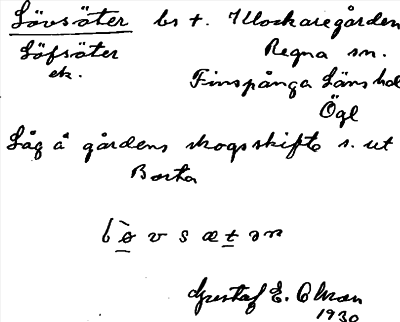 Lövsöter bs t. Klockaregården
Löfsöter Regna sn.
ek. Finspånga Läns hd
Ögl
Låg å gårdens skogsskifte s. ut
Borta
Gustaf E. Olsson
1930